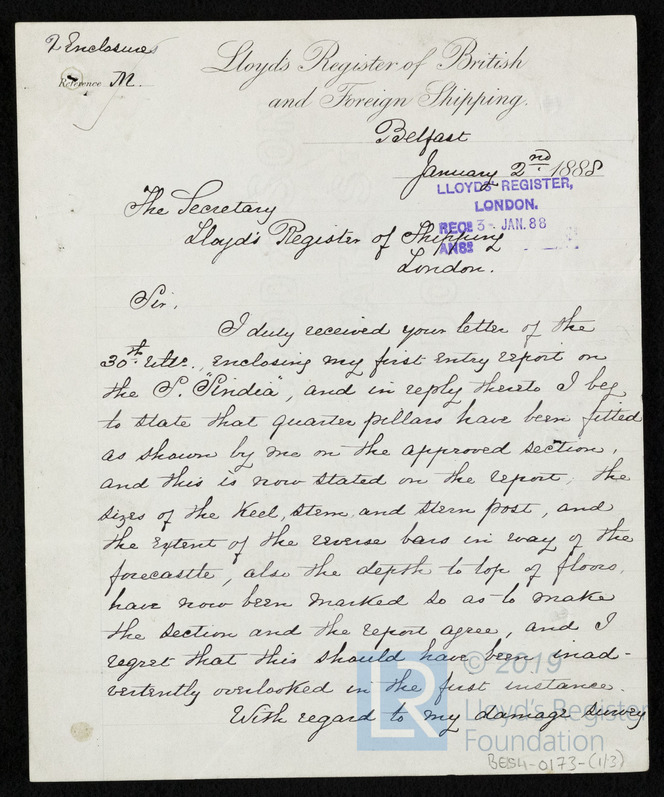 2 Enclosures
Reference M.
Lloyds Register of British
and Foreign Shipping.
Belfast
January 2nd. 1888
LLOYDS REGISTER,
LONDON.
RECD 3 - JAN. 88
ANSD
The Secretary
Lloyd's Register of Shipping
London.
Sir,
I duly received your letter of the
30th. ulto., enclosing my first entry report on
the S. "Sindia", and in reply thereto I beg
to state that quarter pillars have been fitted
as shown by me on the approved section,
and this is now stated on the report; the
sizes of the Keel, stem and stern post, and
the extent of the reverse bars in way of the
forecastle, also the depth to top of floors,
have now been marked so as to make
the section and the report agree, and I
regret that this should have been inad-
vertently overlooked in the first instance.
With regard to my damage survey
LR
© 2019
Lloyd's Register
Foundation
BES4-0173-(1/3)